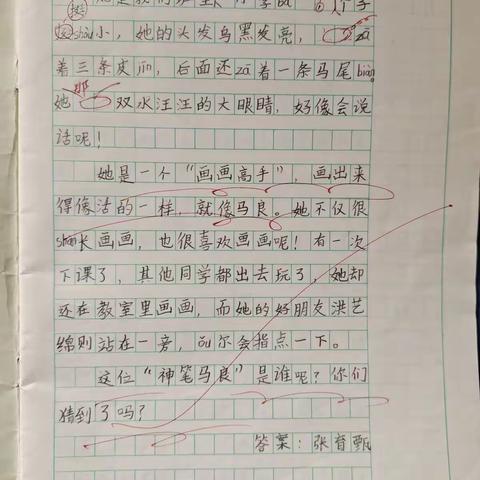 个子
挺
shòu小，她的头发乌黑发亮，zā
着三条皮jīn，后面还zā着一条马尾biàn
那
她双水汪汪的大眼睛，好像会说
话呢！
她是一个“画画高手”，画出来
得像活的一样，就像马良。她不仅很
shàn长画画，也很喜欢画画呢！有一次
下课了，其他同学都出去玩了，她却
还在教室里画画，而她的好朋友洪艺
绵则站在一旁，ǒu尔会指点一下。
这位“神笔马良”是谁呢？你们
猜到了吗？
答案：张育甄